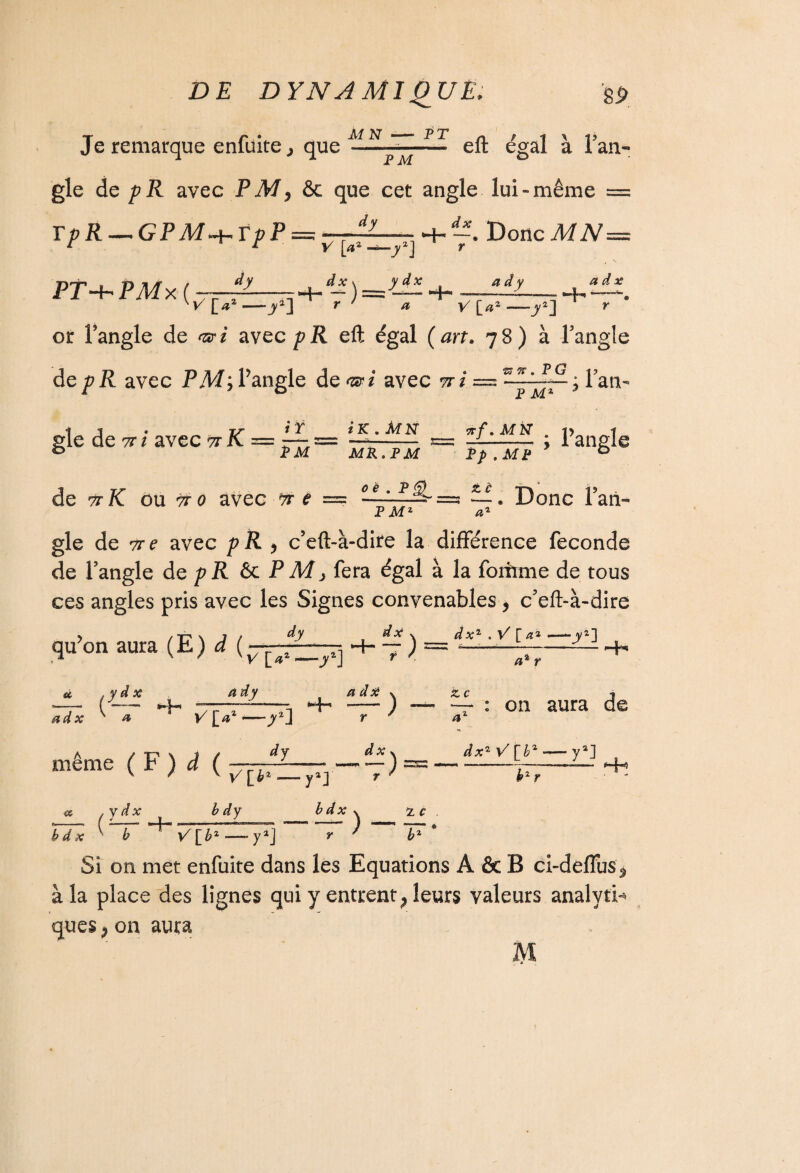 DE DYNAMIQUE. 89
Je remarque enſuite, que (MN — PT)/PM eſt égal à l'an-
gle de pR avec PM, & que cet angle lui-même =
ΥpR — GPM + ΥpP = dy/√[a² — y²] + dx/r. Donc MN =
PT + PM × (dy/√[a² — y²] + dx/r) = ydx/a + ady/√[a² — y²] + adx/r.
or l'angle de ϖi avec pR eſt égal (art. 78) à l'angle
de pR avec PM; l'angle de ϖi avec πi = ϖπ.PG/PM²; l'an-
gle de πi avec πK = iΥ/PM = iK.MN/MR.PM = πf.MN/Pp.MP; l'angle
de πK ou πo avec πe = oè.PQ/PM² = zc/a². Donc l'an-
gle de πe avec pR, c'eſt-à-dire la différence ſeconde
de l'angle de pR & PM, ſera égal à la ſomme de tous
ces angles pris avec les Signes convenables, c'eſt-à-dire
qu'on aura (E) d (dy/√[a² — y²] + dx/r) = dx².√[a² — y²]/a²r +
α/adx (ydx/a + ady/√[a² — y²] + adx/r) — zc/a² : on aura de
même (F) d (dy/√[b² — y²] — dx/r) = — dx²√[b² — y²]/b²r +
α/bdx (ydx/b + bdy/√[b² — y²] — bdx/r) — zc/b².
Si on met enſuite dans les Equations A & B ci-deſſus,
à la place des lignes qui y entrent, leurs valeurs analyti-
ques, on aura
M